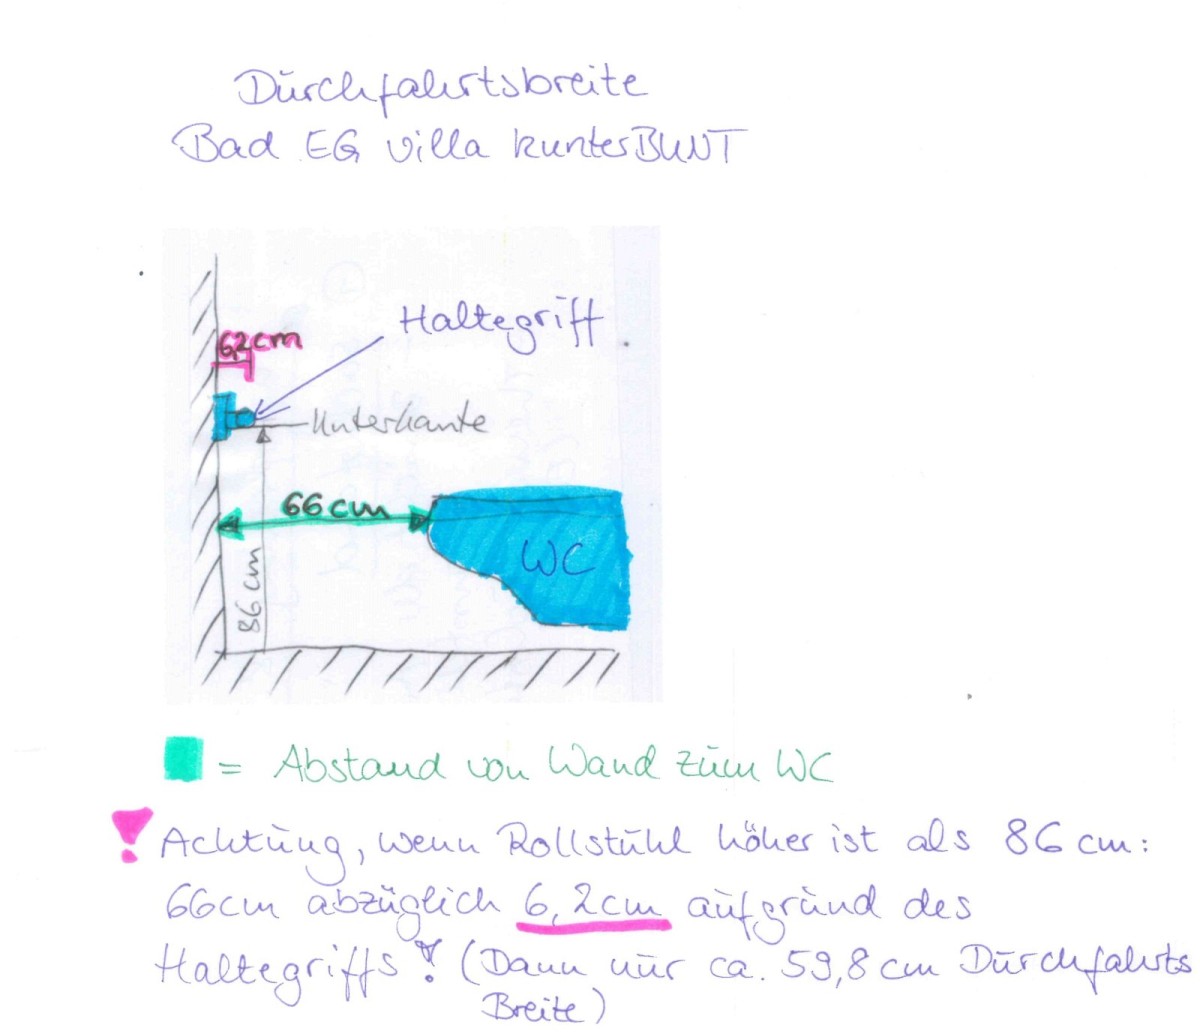 Durchfahrtsbreite
Bad EG Villa kunterBUNT
Haltegriff
6,2cm
Unterkante
66cm
86cm
WC
= Abstand von Wand zum WC
! Achtung, wenn Rollstuhl höher ist als 86cm:
66cm abzüglich 6,2cm aufgrund des
Haltegriffs! (Dann nur ca. 59,8cm Durchfahrts
Breite)